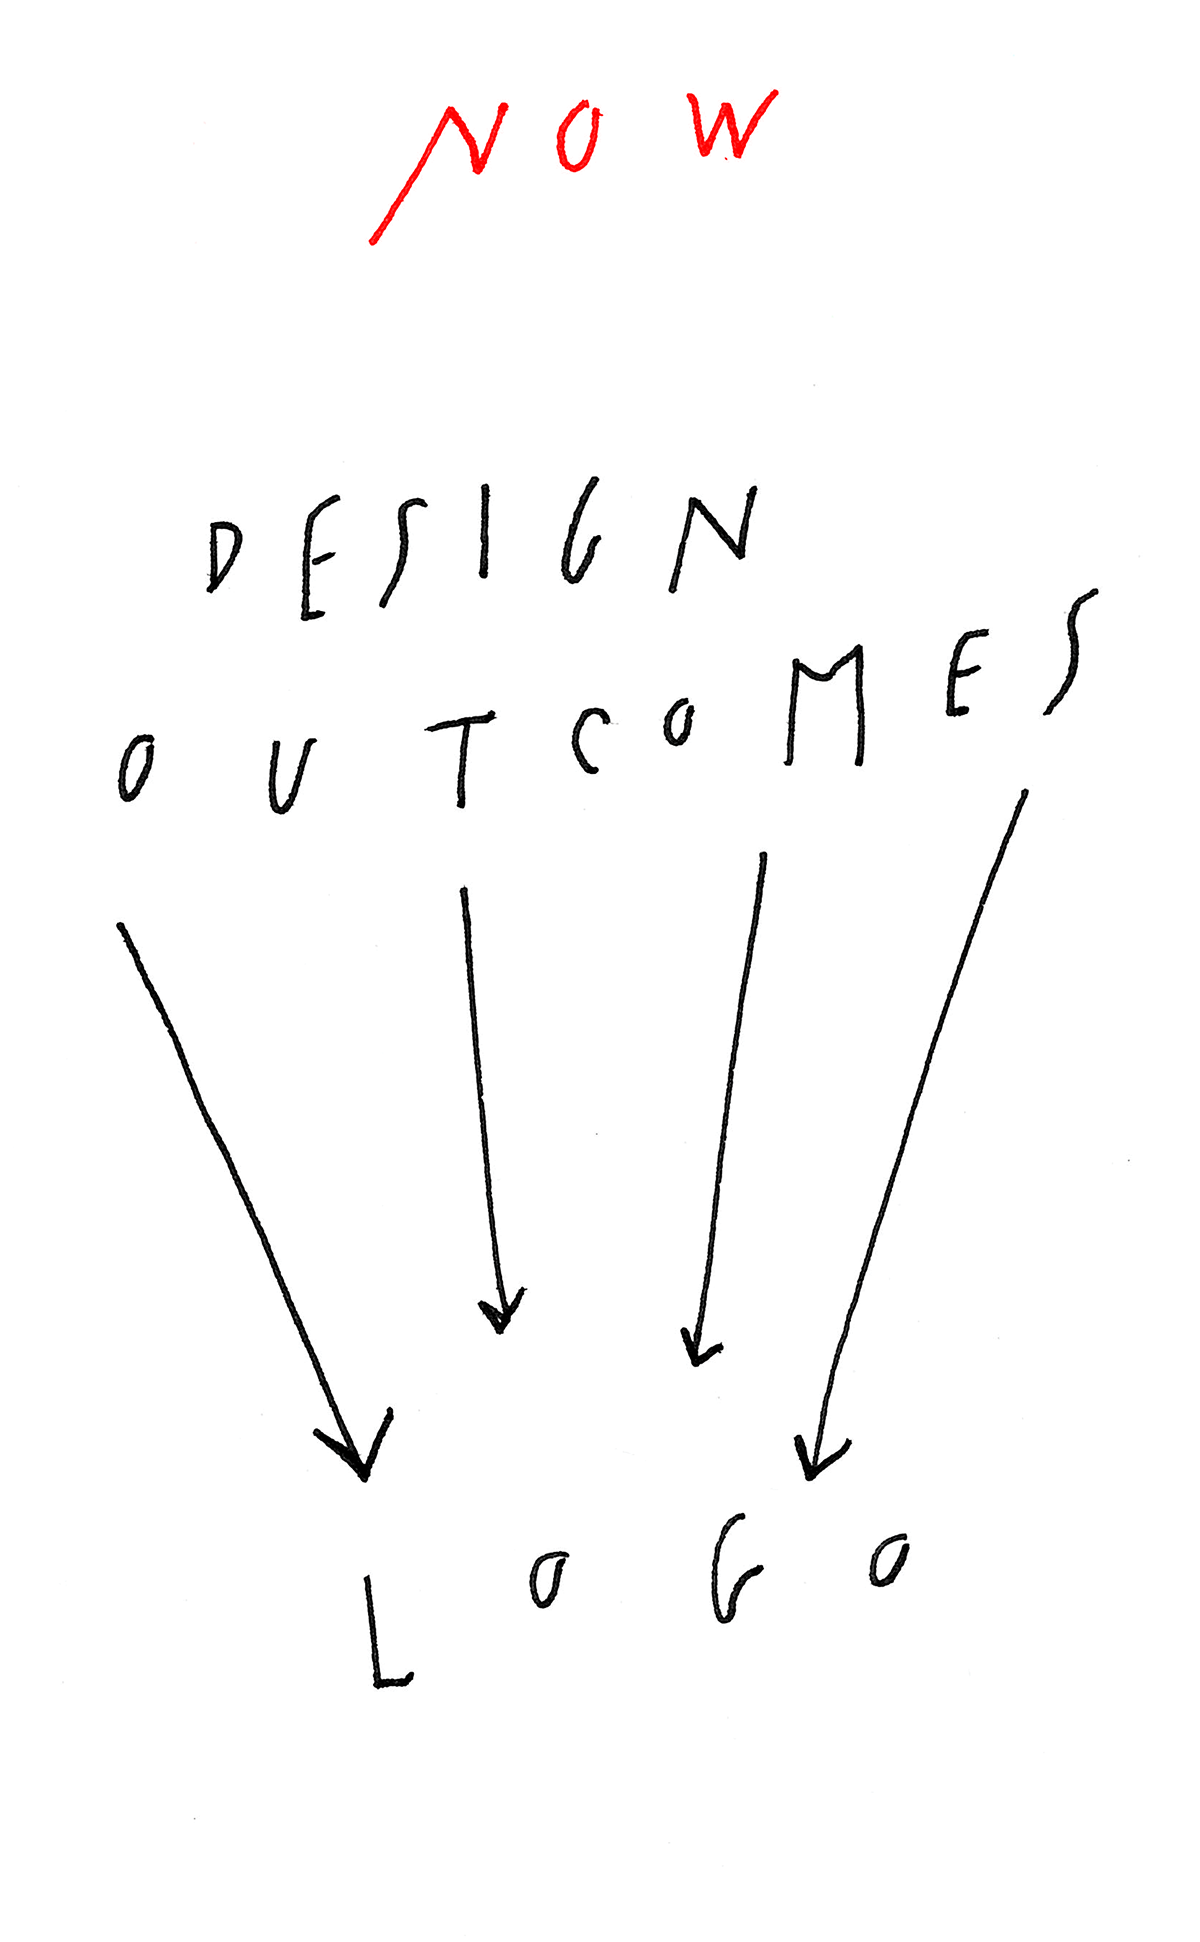 NOW
DESIGN
OUTCOMES
LOGO